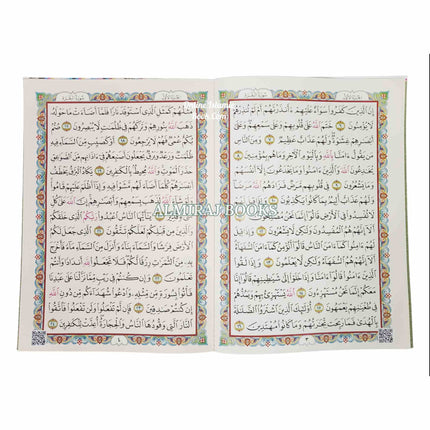 إِنَّ الَّذِينَ كَفَرُوا سَوَاءٌ عَلَيْهِمْ ءَأَنذَرْتَهُمْ أَمْ لَمْ تُنذِرْهُمْ
لَا يُؤْمِنُونَ خَتَمَ اللَّهُ عَلَىٰ قُلُوبِهِمْ وَعَلَىٰ سَمْعِهِمْ وَعَلَىٰ
أَبْصَٰرِهِمْ غِشَٰوَةٌ وَلَهُمْ عَذَابٌ عَظِيمٌ وَمِنَ النَّاسِ
مَن يَقُولُ ءَامَنَّا بِاللَّهِ وَبِالْيَوْمِ الْآخِرِ وَمَا هُم بِمُؤْمِنِينَ
يُخَٰدِعُونَ اللَّهَ وَالَّذِينَ ءَامَنُوا وَمَا يَخْدَعُونَ إِلَّا أَنفُسَهُمْ
وَمَا يَشْعُرُونَ فِي قُلُوبِهِم مَّرَضٌ فَزَادَهُمُ اللَّهُ مَرَضًا
وَلَهُمْ عَذَابٌ أَلِيمٌ بِمَا كَانُوا يَكْذِبُونَ وَإِذَا قِيلَ لَهُمْ
لَا تُفْسِدُوا فِي الْأَرْضِ قَالُوا إِنَّمَا نَحْنُ مُصْلِحُونَ
أَلَا إِنَّهُمْ هُمُ الْمُفْسِدُونَ وَلَٰكِن لَّا يَشْعُرُونَ وَإِذَا قِيلَ لَهُمْ
ءَامِنُوا كَمَا ءَامَنَ النَّاسُ قَالُوا أَنُؤْمِنُ كَمَا ءَامَنَ السُّفَهَاءُ
أَلَا إِنَّهُمْ هُمُ السُّفَهَاءُ وَلَٰكِن لَّا يَعْلَمُونَ وَإِذَا لَقُوا
الَّذِينَ ءَامَنُوا قَالُوا ءَامَنَّا وَإِذَا خَلَوْا إِلَىٰ شَيَٰطِينِهِمْ قَالُوا إِنَّا
مَعَكُمْ إِنَّمَا نَحْنُ مُسْتَهْزِءُونَ اللَّهُ يَسْتَهْزِئُ بِهِمْ وَيَمُدُّهُمْ
فِي طُغْيَٰنِهِمْ يَعْمَهُونَ أُولَٰئِكَ الَّذِينَ اشْتَرَوُا الضَّلَٰلَةَ
بِالْهُدَىٰ فَمَا رَبِحَت تِّجَٰرَتُهُمْ وَمَا كَانُوا مُهْتَدِينَ
٣
مَثَلُهُمْ كَمَثَلِ الَّذِي اسْتَوْقَدَ نَارًا فَلَمَّا أَضَاءَتْ مَا حَوْلَهُ
ذَهَبَ اللَّهُ بِنُورِهِمْ وَتَرَكَهُمْ فِي ظُلُمَٰتٍ لَّا يُبْصِرُونَ صُمٌّ
بُكْمٌ عُمْيٌ فَهُمْ لَا يَرْجِعُونَ أَوْ كَصَيِّبٍ مِّنَ السَّمَاءِ فِيهِ
ظُلُمَٰتٌ وَرَعْدٌ وَبَرْقٌ يَجْعَلُونَ أَصَٰبِعَهُمْ فِي ءَاذَانِهِم مِّنَ الصَّوَٰعِقِ
حَذَرَ الْمَوْتِ وَاللَّهُ مُحِيطٌ بِالْكَٰفِرِينَ يَكَادُ الْبَرْقُ يَخْطَفُ
أَبْصَٰرَهُمْ كُلَّمَا أَضَاءَ لَهُم مَّشَوْا فِيهِ وَإِذَا أَظْلَمَ عَلَيْهِمْ قَامُوا
وَلَوْ شَاءَ اللَّهُ لَذَهَبَ بِسَمْعِهِمْ وَأَبْصَٰرِهِمْ إِنَّ اللَّهَ عَلَىٰ كُلِّ
شَيْءٍ قَدِيرٌ يَٰأَيُّهَا النَّاسُ اعْبُدُوا رَبَّكُمُ الَّذِي خَلَقَكُمْ
وَالَّذِينَ مِن قَبْلِكُمْ لَعَلَّكُمْ تَتَّقُونَ الَّذِي جَعَلَ لَكُمُ
الْأَرْضَ فِرَٰشًا وَالسَّمَاءَ بِنَاءً وَأَنزَلَ مِنَ السَّمَاءِ مَاءً فَأَخْرَجَ
بِهِ مِنَ الثَّمَرَٰتِ رِزْقًا لَّكُمْ فَلَا تَجْعَلُوا لِلَّهِ أَندَادًا وَأَنتُمْ
تَعْلَمُونَ وَإِن كُنتُمْ فِي رَيْبٍ مِّمَّا نَزَّلْنَا عَلَىٰ عَبْدِنَا
فَأْتُوا بِسُورَةٍ مِّن مِّثْلِهِ وَادْعُوا شُهَدَاءَكُم مِّن دُونِ اللَّهِ
إِن كُنتُمْ صَٰدِقِينَ فَإِن لَّمْ تَفْعَلُوا وَلَن تَفْعَلُوا فَاتَّقُوا
النَّارَ الَّتِي وَقُودُهَا النَّاسُ وَالْحِجَارَةُ أُعِدَّتْ لِلْكَٰفِرِينَ
٤
ALMIRAJ BOOKS